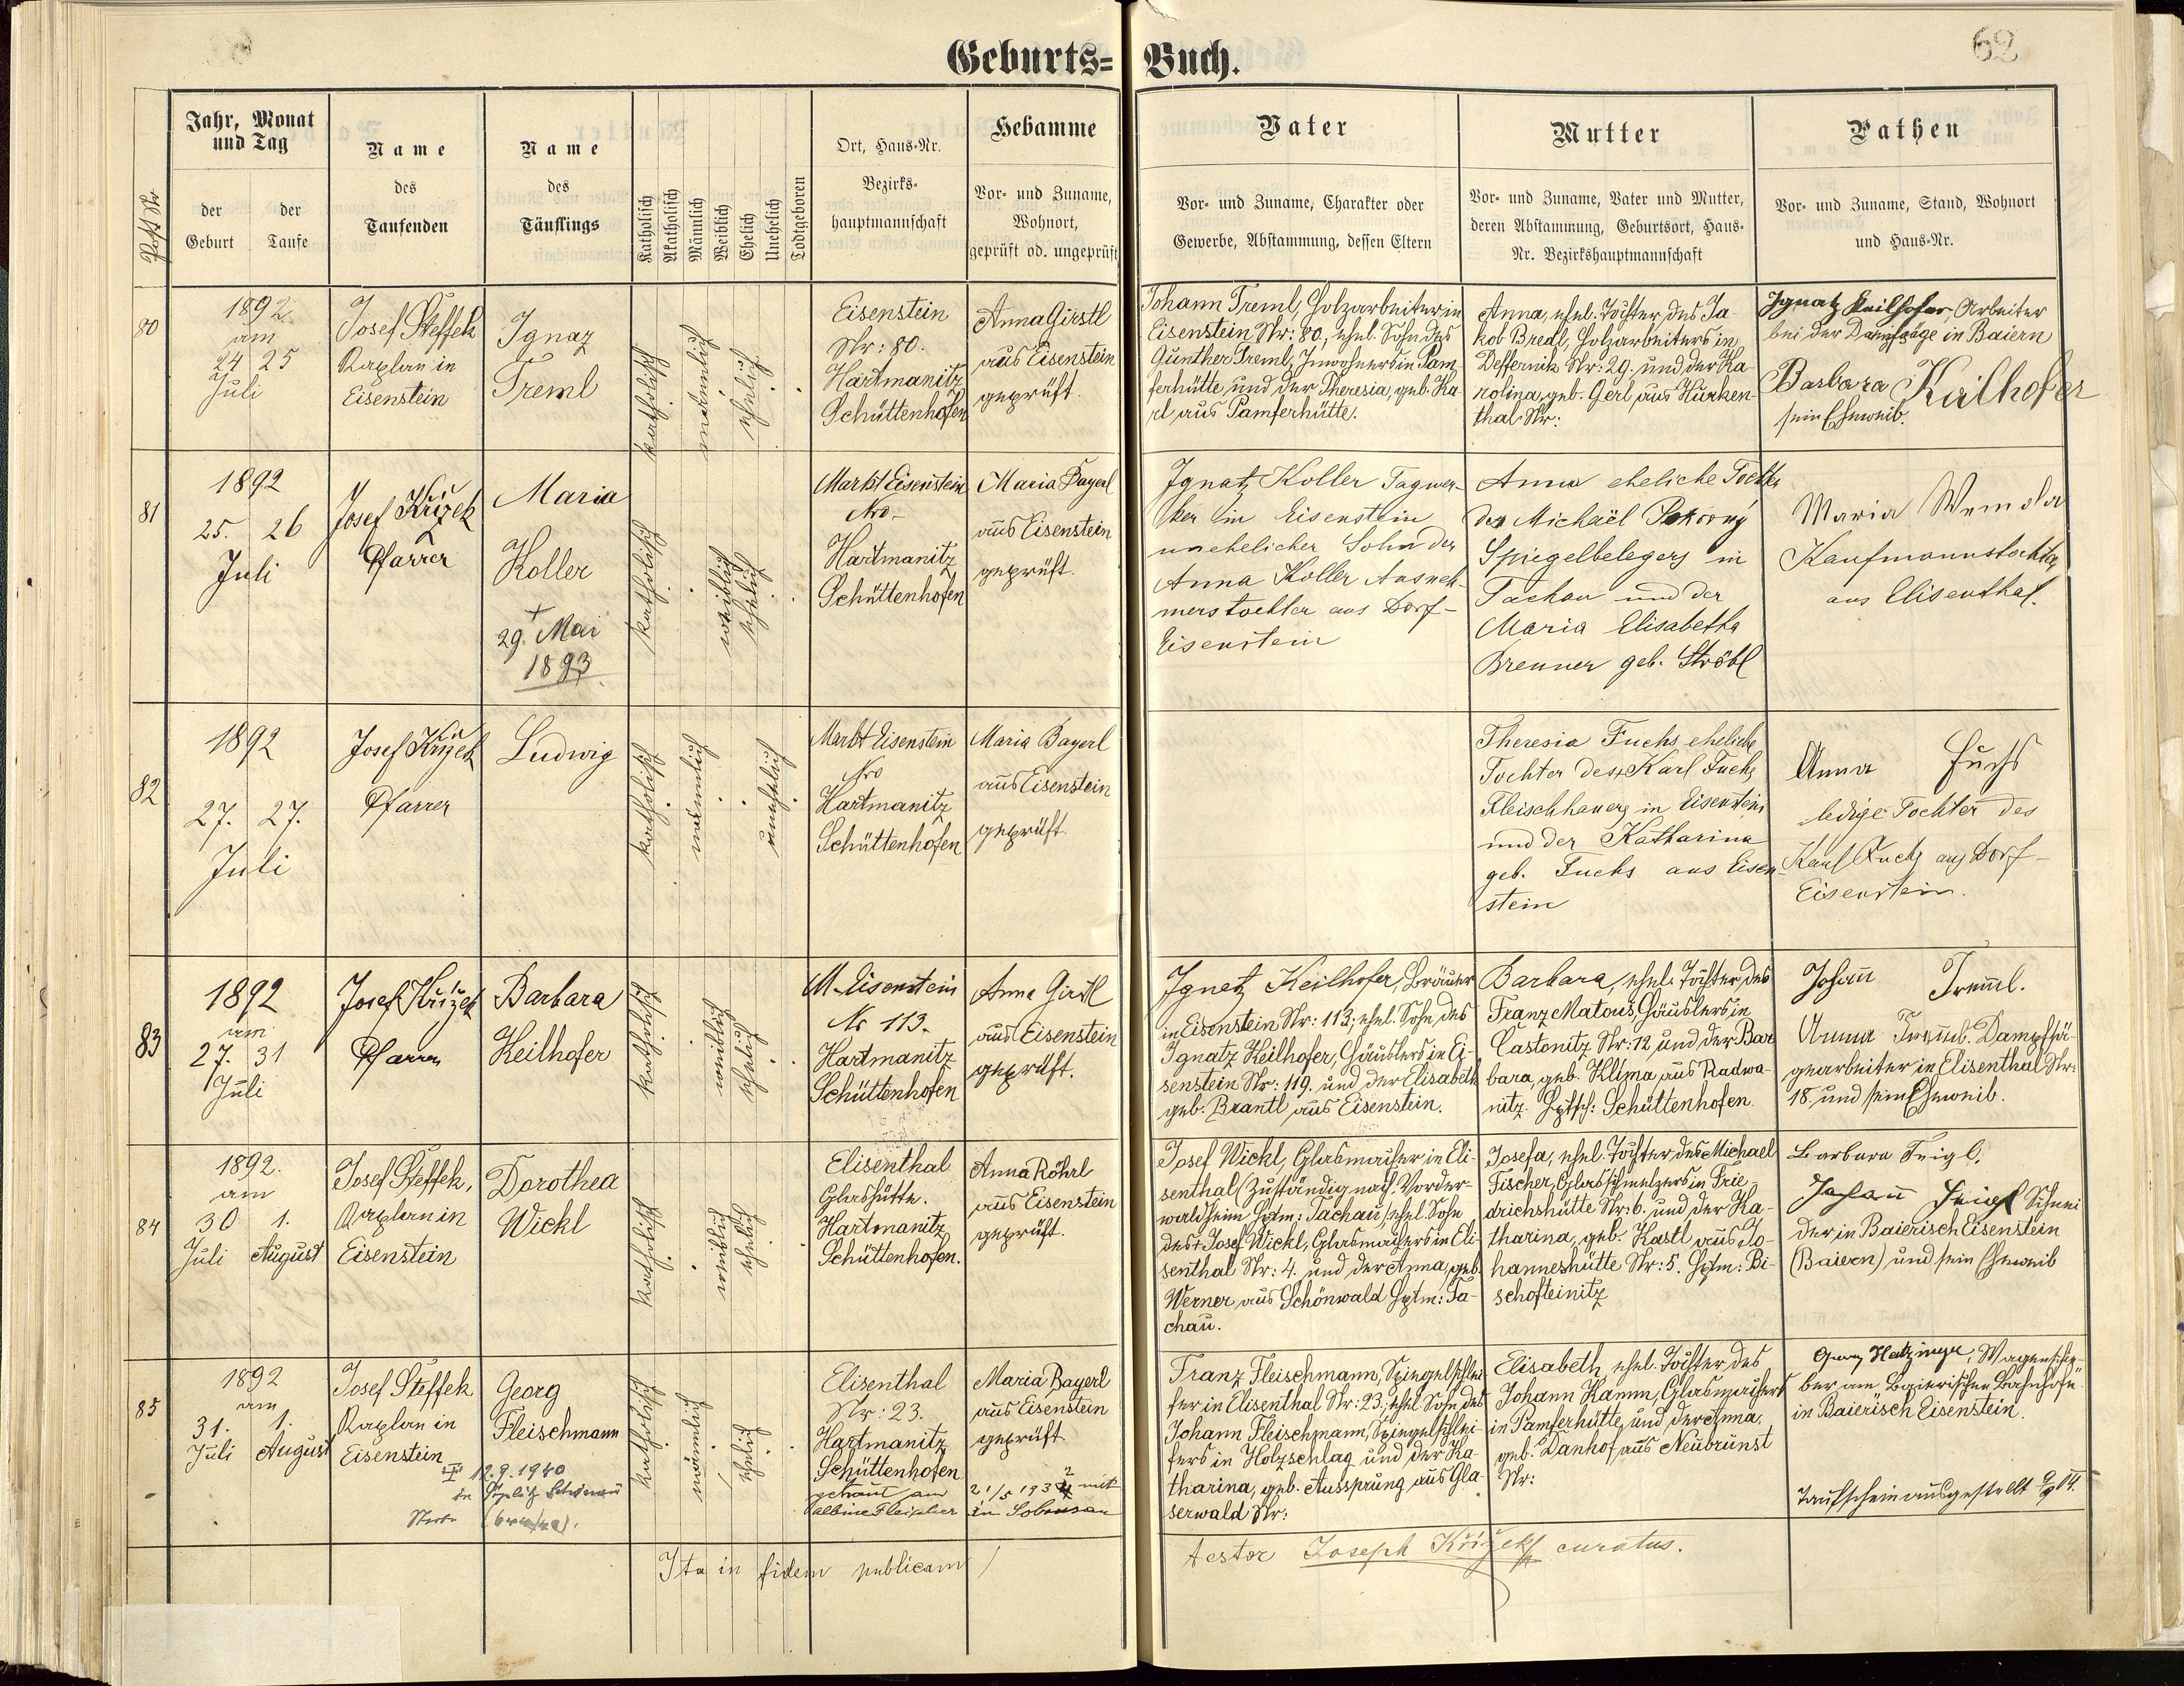 Geburts=Buch.
62
Post Nr.
Jahr, Monat
und Tag
der
Geburt
der
Taufe
Name
des
Taufenden
Name
des
Täuflings
Katholisch
Akatholisch
Männlich
Weiblich
Ehelich
Unehelich
Todtgeboren
Ort, Haus-Nr.
Bezirks-
hauptmannschaft
Hebamme
Vor- und Zuname,
Wohnort,
geprüft od. ungeprüft
Vater
Vor- und Zuname, Charakter oder
Gewerbe, Abstammung, dessen Eltern
Mutter
Vor- und Zuname, Vater und Mutter,
deren Abstammung, Geburtsort, Haus-
Nr. Bezirkshauptmannschaft
Pathen
Vor- und Zuname, Stand, Wohnort
und Haus-Nr.
80
1892
am
24 25
Juli
Josef Steffek
Kaplan in
Eisenstein
Ignaz
Treml
katholisch
männlich
ehelich
Eisenstein
Nr: 80.
Hartmanitz
Schüttenhofen
Anna Girstl
aus Eisenstein
geprüft.
Johann Treml, Holzarbeiter in
Eisenstein Nr: 80, ehel. Sohn des
Günther Treml, Inwohners in Pam-
ferhütte und der Theresia, geb. Ka-
rl aus Pamferhütte.
Anna, ehel. Tochter des Ja-
kob Bredl, Holzarbeiters in
Deffernik Nr: 29. und der Ka-
rolina, geb. Gerl aus Hurken-
thal Nr:
Ignatz Keilhofer, Arbeiter
bei der Dampfsäge in Baiern
Barbara Keilhofer
sein Eheweib.
81
1892
25. 26
Juli
Josef Křížek
Pfarrer
Maria
Koller
+
29. Mai
1893
katholisch
weiblich
ehelich
Markt Eisenstein
Nro-
Hartmanitz
Schüttenhofen
Maria Bayerl
aus Eisenstein
geprüft.
Ignatz Koller Tagwer-
ker in Eisenstein
unehelicher Sohn der
Anna Koller Ausneh-
merstochter aus Dorf-
Eisenstein
Anna eheliche Tochter
des Michaël Pokorný
Spiegelbelegers in
Tachau und der
Maria Elisabetha
Brenner geb. Ströbl
Maria
Kaufmannstochter
aus Elisenthal.
82
1892
27. 27.
Juli
Josef Křížek
Pfarrer
Ludwig
katholisch
männlich
unehelich
Markt Eisenstein
Nro
Hartmanitz
Schüttenhofen
Maria Bayerl
aus Eisenstein
geprüft.
Theresia Fuchs eheliche
Tochter des + Karl Fuchs
Fleischhauers in Eisenstein
und der Katharina
geb. Fuchs aus Eisen-
stein
Anna Fuchs
ledige Tochter des
Karl Fuchs aus Dorf-
Eisenstein.
83
1892
am
27. 31
Juli
Josef Křížek
Pfarrer
Barbara
Keilhofer
katholisch
weiblich
ehelich
M. Eisenstein
Nr 113.
Hartmanitz
Schüttenhofen
Anna Girstl
aus Eisenstein
geprüft.
Ignatz Keilhofer, Bräuer
in Eisenstein Nr: 113; ehel. Sohn des
Ignatz Keilhofer, Häuslers in Ei-
senstein Nr: 119. und der Elisabeth
geb. Brantl aus Eisenstein.
Barbara, ehel. Tochter des
Franz Matouš, Häuslers in
Castonitz Nr: 12 und der Bar
bara, geb. Klima aus Radwa-
nitz. Hptsch: Schüttenhofen.
Johann Treml.
Anna Treml. Dampfsä-
gearbeiter in Elisenthal Nr:
18. und sein Eheweib.
84
1892.
am
30 1.
Juli August
Josef Steffek,
Kaplan in
Eisenstein
Dorothea
Wickl
katholisch
weiblich
ehelich
Elisenthal
Glashütte.
Hartmanitz
Schüttenhofen.
Anna Röhrl
aus Eisenstein
geprüft.
Josef Wickl, Glasmacher in Eli-
senthal (Zuständig nach Vorder-
waldheim Hptm: Tachau) ehel. Sohn
des + Josef Wickl, Glasmachers in Eli-
senthal Nr: 4. und der Anna, geb.
Werner aus Schönwald Hptm: Ta-
chau.
Josefa, ehel. Tochter des Michael
Fischer, Glasschmelzers in Frie-
drichshütte Nr: 6. und der Ka-
tharina, geb. Kastl aus Jo-
hanneshütte Nr: 5. Hptm: Bi-
schofteinitz
Barbara Feigl.
Johann Feigl Schnei
der in Baierisch Eisenstein
(Baiern) und sein Eheweib
85
1892
am
31. 1.
Juli August
Josef Steffek
Kaplan in
Eisenstein
12.9.1940
in Teplitz Schönau
Georg
Fleischmann
katholisch
männlich
ehelich
Elisenthal
Nr: 23.
Hartmanitz
Schüttenhofen
getraut am
Albine Fleischer
Maria Bayerl
aus Eisenstein
geprüft
21/5 1932 mit
in Sobrusan
Franz Fleischmann, Spiegelschlei
fer in Elisenthal Nr: 23; ehel. Sohn des
Johann Fleischmann, Spiegelschlei-
fers in Holzschlag und der Ka-
tharina, geb. Aussprung aus Gla-
serwald Nr:
Elisabeth, ehel. Tochter des
Johann Kamm, Glasmachers
in Pamferhütte, und der Anna,
geb. Danhof aus Neubrunst
Nr:
Georg Hatzinger, Wagenschie-
ber am Baierischen Bahnhofe
in Baierisch Eisenstein.
Taufschein ausgestellt
Ita in fidem publicam
testor Joseph Křížek curatus.